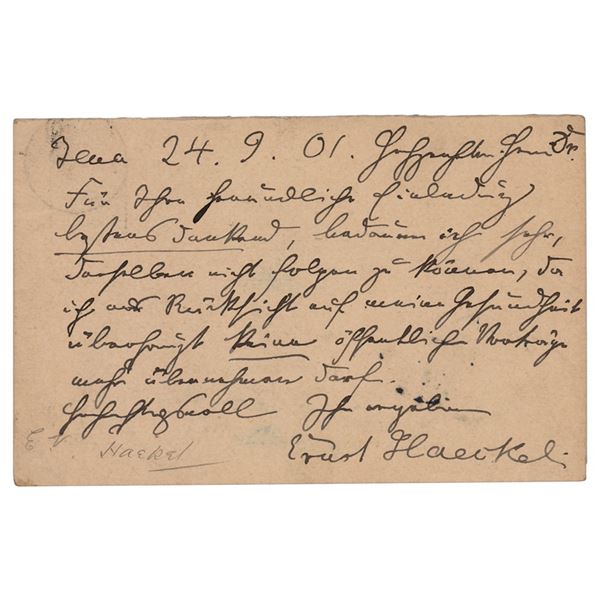 Jena 24. 9. 01. Hochgeehrter Herr Dr.
Für Ihre freundliche Einladung
bestens dankend, bedaure ich sehr,
derselben nicht folgen zu können, da
ich aus Rücksicht auf meine Gesundheit
überhaupt keine öffentliche Vorträge
mehr übernehmen darf.
Hochachtungsvoll Ihr ergebener
Ernst Haeckel.
Haekel